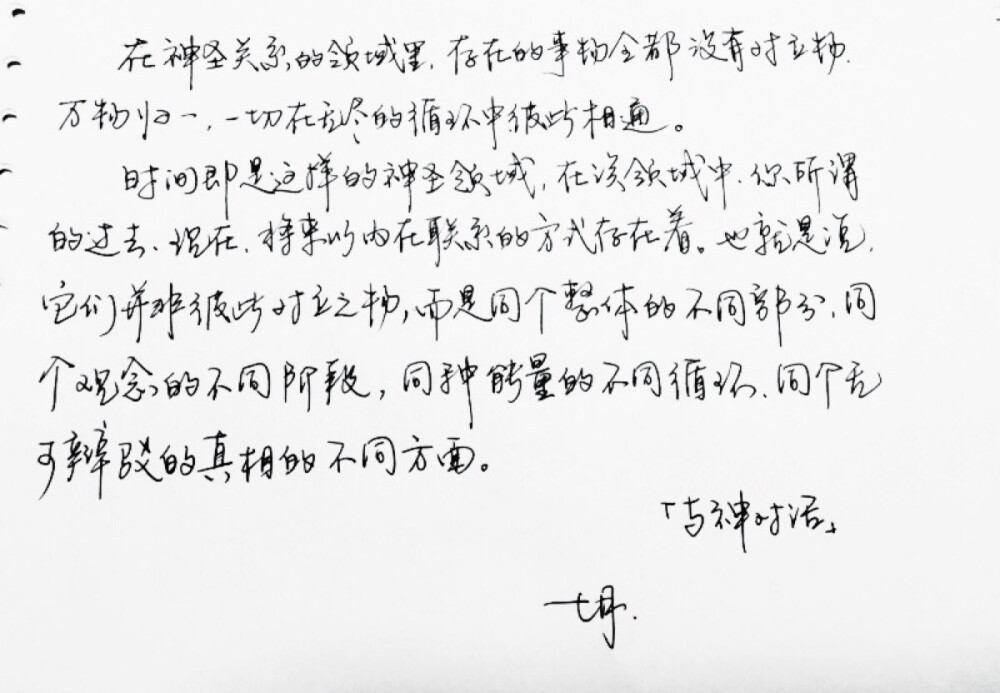 在神圣关系的领域里,存在的事物全都没有对立物.
万物归一,一切在无尽的循环中彼此相通。
时间即是这样的神圣领域,在该领域中、你所谓
的过去、现在、将来以内在联系的方式存在着。也就是说,
它们并非彼此对立之物,而是同个整体的不同部分、同
个观念的不同阶段,同种能量的不同循环、同个无
可辩驳的真相的不同方面。
「与神对话」